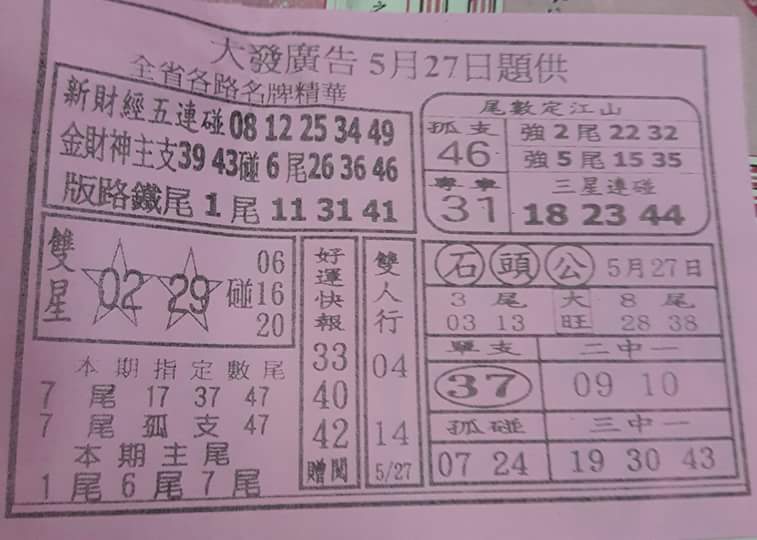 大發廣告 5月27日題供
全省各路名牌精華
新財經五連碰 08 12 25 34 49
金財神主支 39 43碰 6尾 26 36 46
版路鐵尾 1尾 11 31 41
尾數定江山
孤支 46
強2尾 22 32
強5尾 15 35
專車 31
三星連碰
18 23 44
雙星 02 29 碰 06 16 20
好運快報
33
40
42
贈閱
雙人行
04
14
5/27
石頭公 5月27日
3尾 大旺 8尾
03 13 28 38
單支 二中一
37 09 10
孤碰 三中一
07 24 19 30 43
本期指定數尾
7尾 17 37 47
7尾孤支 47
本期主尾
1尾6尾7尾